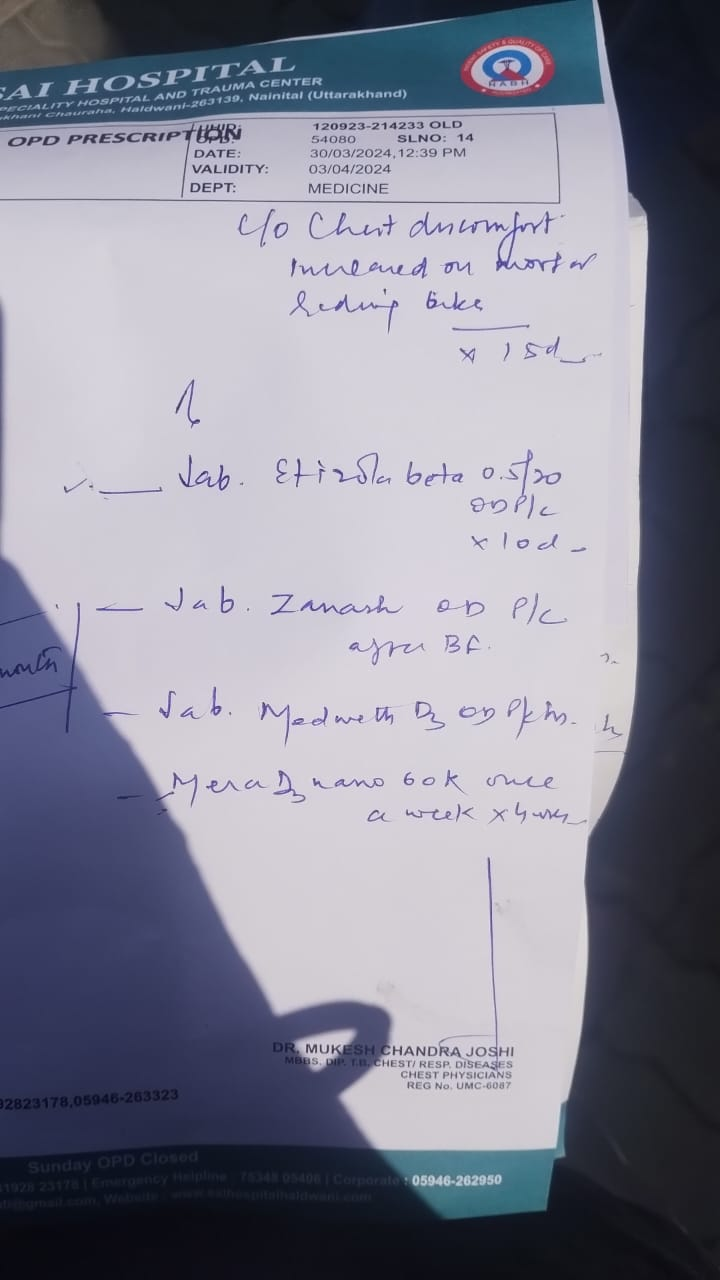 SAI HOSPITAL
SPECIALITY HOSPITAL AND TRAUMA CENTER
khani Chauraha, Haldwani-263139, Nainital (Uttarakhand)
NABH
OPD PRESCRIPTION
120923-214233 OLD
54080 SLNO: 14
DATE: 30/03/2024,12:39 PM
VALIDITY: 03/04/2024
DEPT: MEDICINE
c/o Chest discomfort
increased on
bike
x 15d
Tab. Etizola beta 0.5/20
OD P/c
x 10d
Tab. OD P/c
after BF.
month
Tab. D3 OD
D3 nano 60K once
a week x
DR. MUKESH CHANDRA JOSHI
MBBS, DIP. T.B, CHEST/ RESP. DISEASES
CHEST PHYSICIANS
REG No. UMC-6087
92823178,05946-263323
Sunday OPD Closed
Emergency Helpline : 75348 05406 | Corporate : 05946-262950
@gmail.com, Website : www.saihospitalhaldwani.com